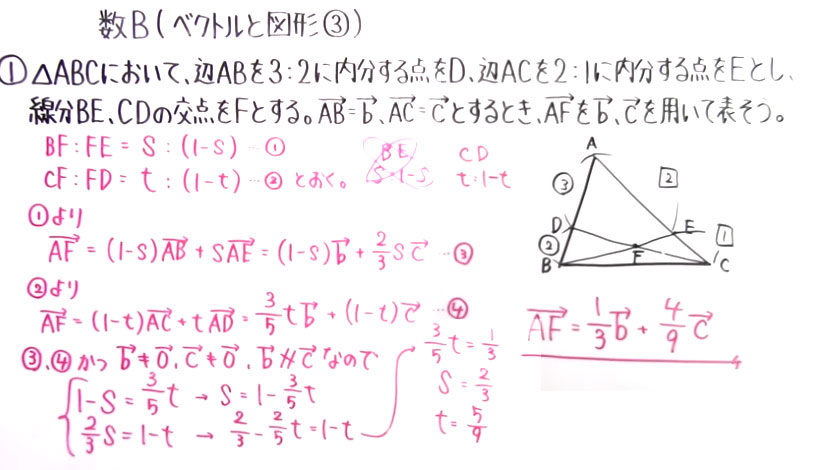 数B(ベクトルと図形③)
① △ABCにおいて、辺ABを3:2に内分する点をD、辺ACを2:1に内分する点をEとし、
線分BE、CDの交点をFとする。AB→=b→、AC→=c→とするとき、AF→をb→、c→を用いて表そう。
BF:FE = S:(1-S) …①
CF:FD = t:(1-t) …② とおく。
BE
S 1-S
CD
t:1-t
①より
AF→ = (1-S)AB→ + SAE→ = (1-S)b→ + 2/3 S c→ …③
②より
AF→ = (1-t)AC→ + tAD→ = 3/5 t b→ + (1-t)c→ …④
③、④かつ b→≠0→、c→≠0→、b→∦c→なので
1-S = 3/5 t → S = 1 - 3/5 t
2/3 S = 1-t → 2/3 - 2/5 t = 1-t
3/5 t = 1/3
S = 2/3
t = 5/9
A
③
2
D
E
②
1
B
F
C
AF→ = 1/3 b→ + 4/9 c→